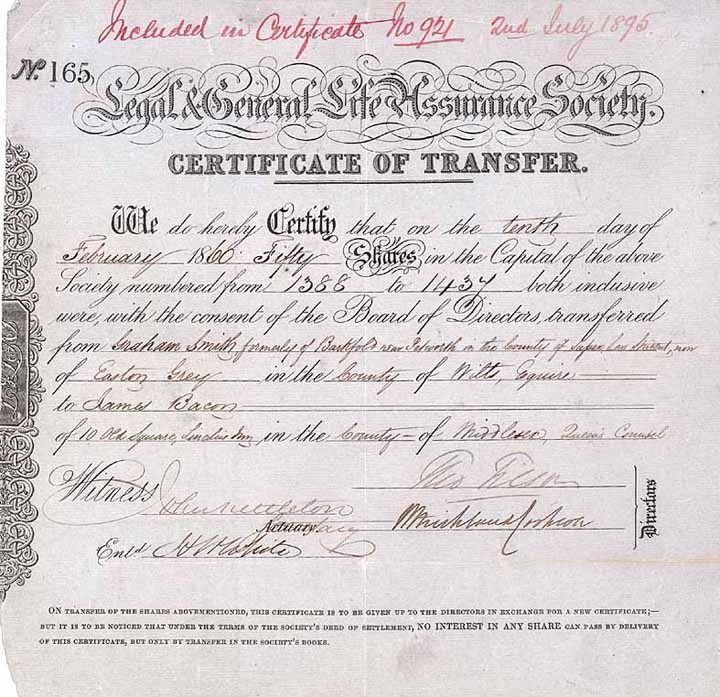 Included in Certificate No 921 2nd July 1895
No. 165
Legal & General Life Assurance Society.
CERTIFICATE OF TRANSFER.
We do hereby Certify that on the tenth day of
February 1860 Fifty Shares in the Capital of the above
Society numbered from 1388 to 1437 both inclusive
were, with the consent of the Board of Directors, transferred
from Graham Smith formerly of near Petworth in the County of now
of Easton Grey in the County of Wilts, Esquire
to James Bacon
of 10 Old Square, Lincolns Inn in the County of Middlesex Queen's Counsel
Witness
Actuary
Entd
Directors
ON TRANSFER OF THE SHARES ABOVEMENTIONED, THIS CERTIFICATE IS TO BE GIVEN UP TO THE DIRECTORS IN EXCHANGE FOR A NEW CERTIFICATE;—
BUT IT IS TO BE NOTICED THAT UNDER THE TERMS OF THE SOCIETY'S DEED OF SETTLEMENT, NO INTEREST IN ANY SHARE CAN PASS BY DELIVERY
OF THIS CERTIFICATE, BUT ONLY BY TRANSFER IN THE SOCIETY'S BOOKS.